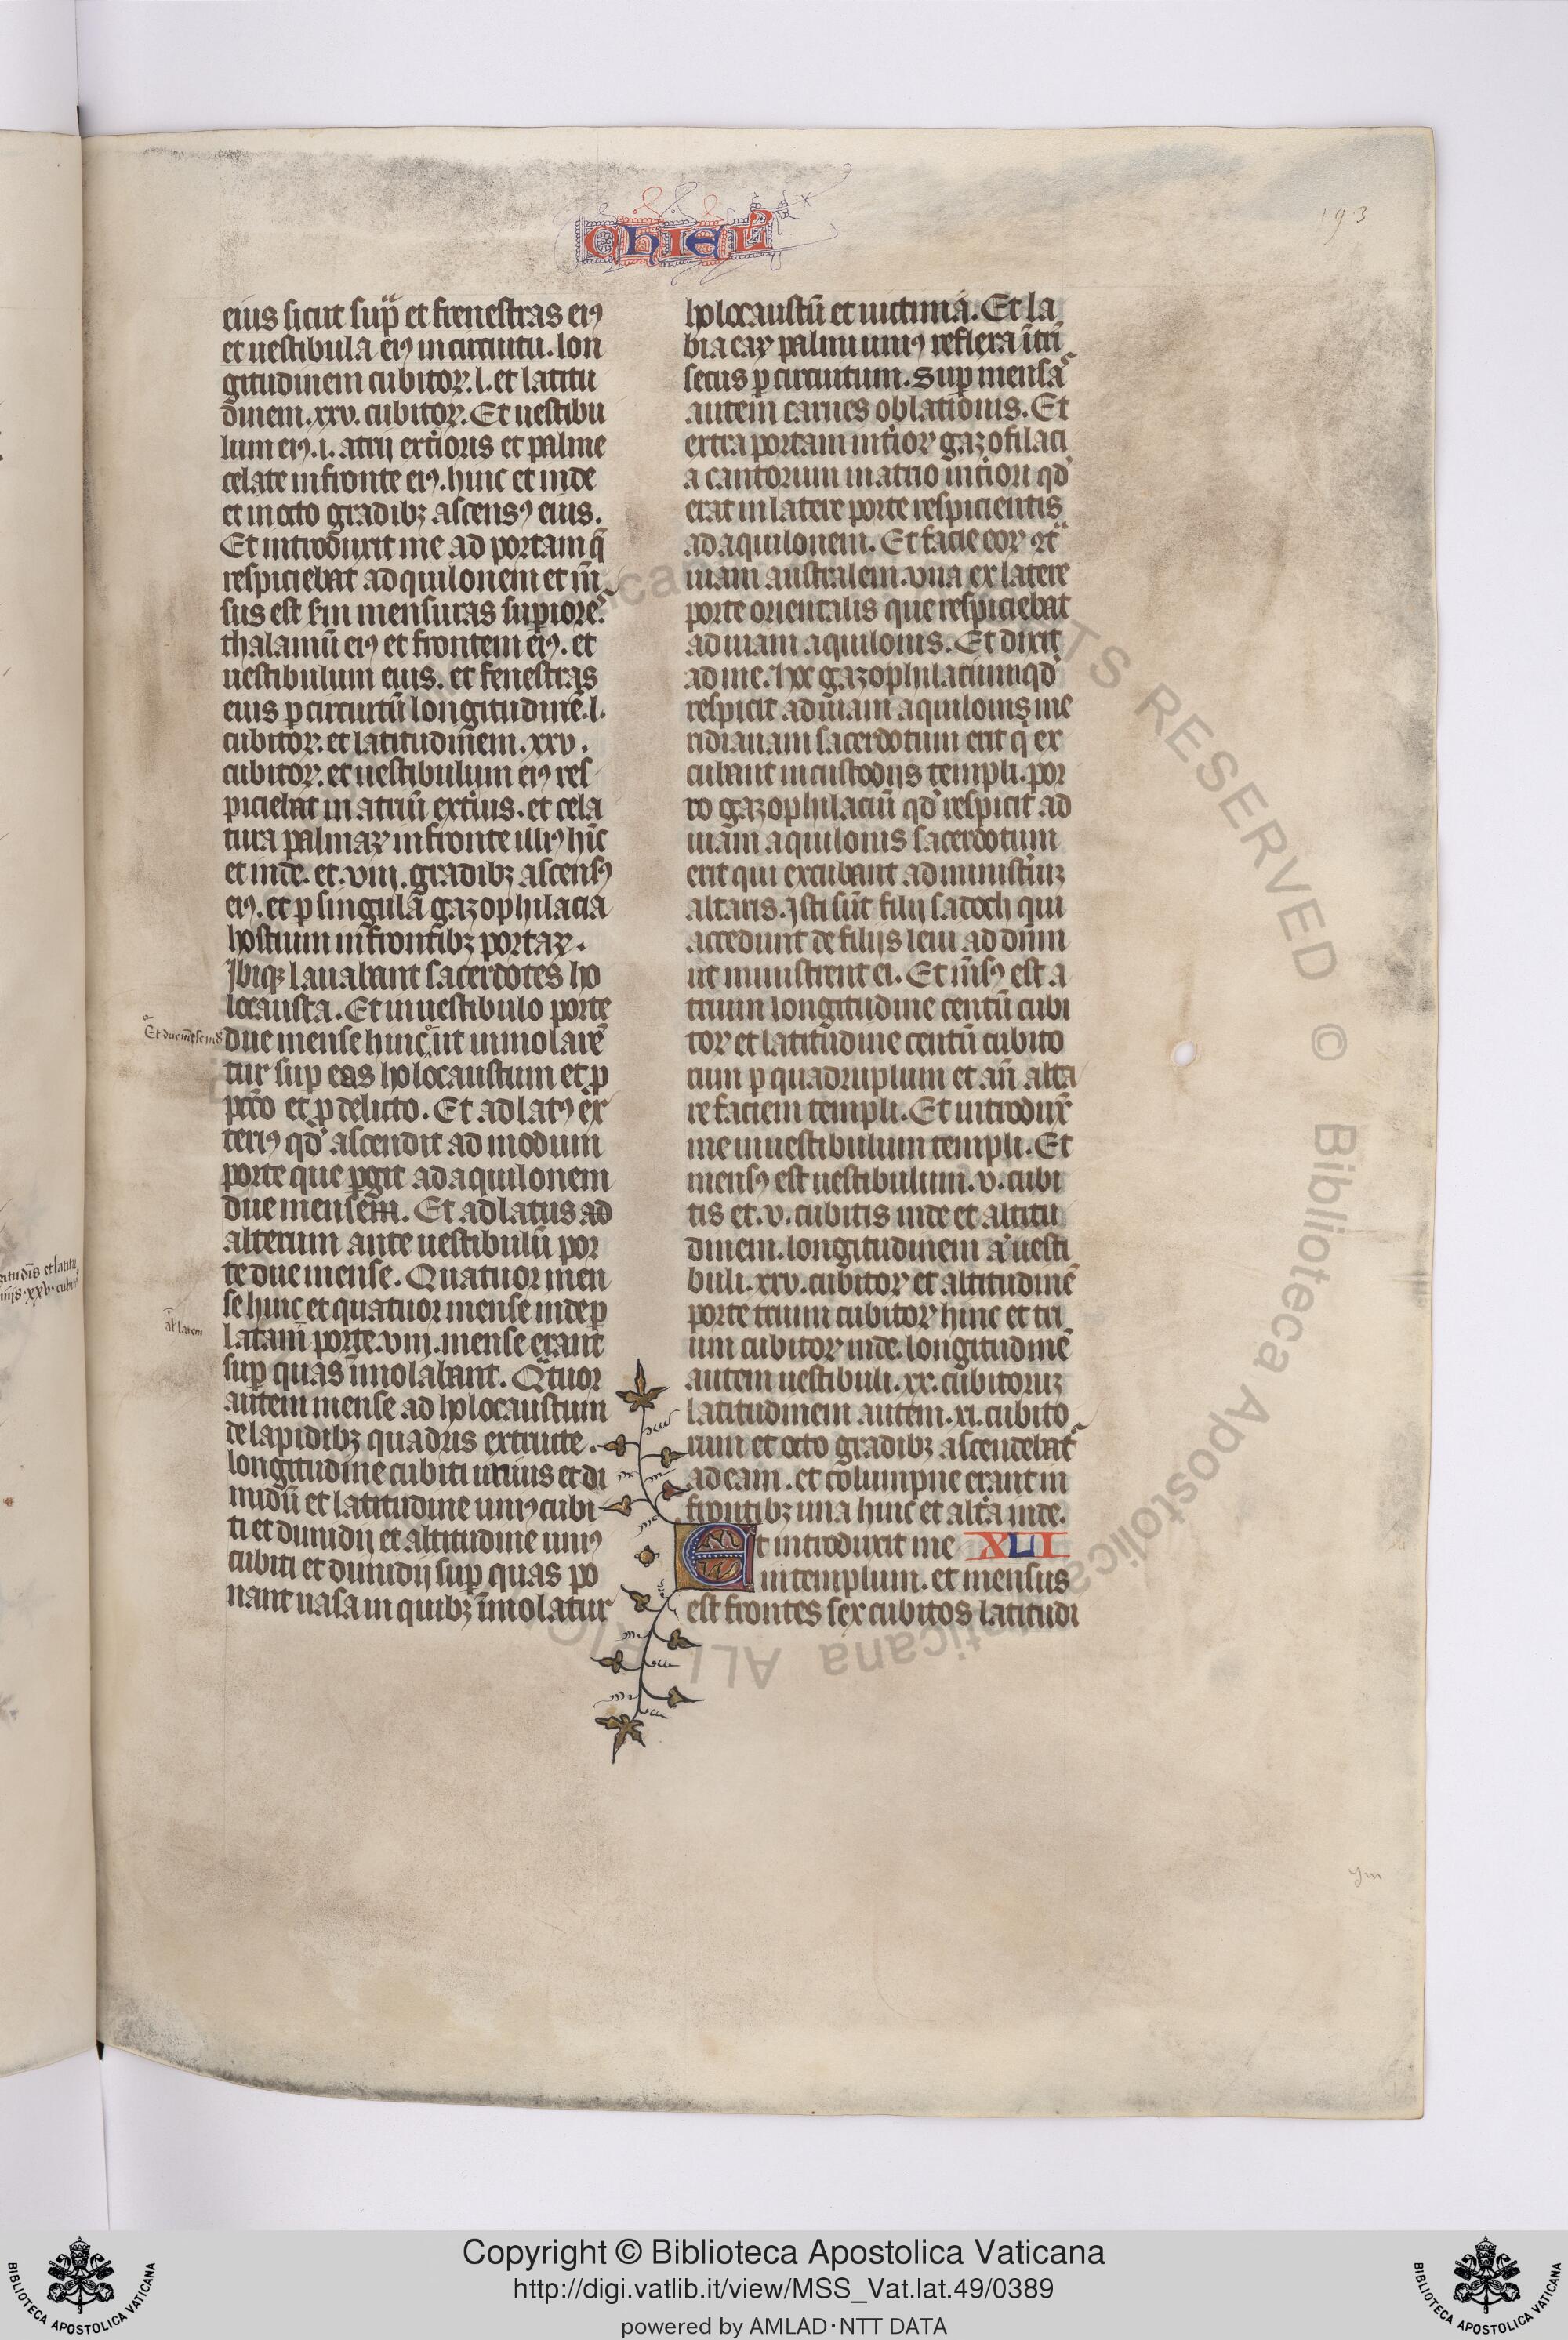 CHIEL
193
eius sicut sup̃ et frenestras eiꝰ
et uestibula eiꝰ in circuitu. lon
gitudinem cubitoꝝ. l. et latitu
dinem. xxv. cubitoꝝ. Et uestibu
lum eiꝰ. i. atrij exterioris et palme
celate in fronte eiꝰ. hinc et inde
et in octo gradibꝫ ascensꝰ eius.
Et introduxit me ad portam q̃
respiciebat ad quilonem et m̃
sus est scdm mensuras superiores.
thalamũ eiꝰ et frontem eiꝰ. et
uestibulum eius. et fenestras
eius ꝑ circuitũ longitudinẽ. l.
cubitoꝝ. et latitudinem. xxv.
cubitoꝝ. et uestibulum eiꝰ res
piciebat in atriũ exterius. et cela
tura palmaꝝ in fronte illiꝰ hĩc
et inde. et. viij. gradibꝫ ascensꝰ
eiꝰ. et ꝑ singula gazophilacia
hostium in frontibꝫ portaꝝ.
Ibiqꝫ lauabant sacerdotes ho
locausta. Et in uestibulo porte
Et due mẽse inde
due mense hinc ut immolarẽ
tur suꝑ eas holocaustum et ꝓ
pctõ et ꝓ delicto. Et ad latꝰ ex
teriꝰ qd̃ ascendit ad modum
porte que ꝑgit ad aquilonem
due mense. Et ad latus ad
alterum ante uestibulũ por
te due mense. Quatuor men
se hinc et quatuor mense inde ꝑ
al' latera
latam porte. viij. mense erant
suꝑ quas ĩmolabant. Qtuor
autem mense ad holocaustum
de lapidibꝫ quadris extructe.
longitudine cubiti unius et di
midij et latitudine uniꝰ cubi
ti et dimidij et altitudine uniꝰ
cubiti et dimidij suꝑ quas po
nant uasa in quibꝫ ĩmolatur
holocaustũ et uictima. Et la
bia eaꝝ palmi uniꝰ reflexa ĩtrĩ
secus ꝑ circuitum. Suꝑ mensas
autem carnes oblationis. Et
extra portam interioꝝ gazofilaci
a cantorum in atrio interiori qd̃
erat in latere porte respicientis
ad aquilonem. Et facie eoꝝ ꝯtra
uiam australem. una ex latere
porte orientalis que respiciebat
ad uiam aquilonis. Et dixit
ad me. hoc gazophilacium qd̃
respicit ad uiam aquilonis me
ridianam sacerdotum erit qi ex
cubant in custodijs templi. por
ro gazophilaciũ qd̃ respicit ad
uiam aquilonis sacerdotum
erit qui excubant ad ministeriũ
altaris. Isti sũt filij sadoch qui
accedunt de filijs leui ad dñm
ut ministrent ei. Et mẽsꝰ est a
trium longitudine centũ cubi
toꝝ et latitudine centũ cubito
rum ꝑ quadruplum et añ alta
re faciem templi. Et introdux̃
me in uestibulum templi. Et
mensꝰ est uestibulum. v. cubi
tis et. v. cubitis inde et altitu
dinem. longitudinem aũ uesti
buli. xxv. cubitoꝝ et altitudinẽ
porte trium cubitoꝝ hinc et tri
um cubitoꝝ inde. longitudinẽ
autem uestibuli. xx. cubitorum
latitudinem autem. xi. cubito
rum et octo gradibꝫ ascendebat
ad eam. et columpne erant in
frontibꝫ una hinc et altera inde.
Et introduxit me XLI
in templum. et mensus
est frontes sex cubitos latitudi
Copyright © Biblioteca Apostolica Vaticana
http://digi.vatlib.it/view/MSS_Vat.lat.49/0389
powered by AMLAD·NTT DATA
BIBLIOTECA APOSTOLICA VATICANA
BIBLIOTECA APOSTOLICA VATICANA